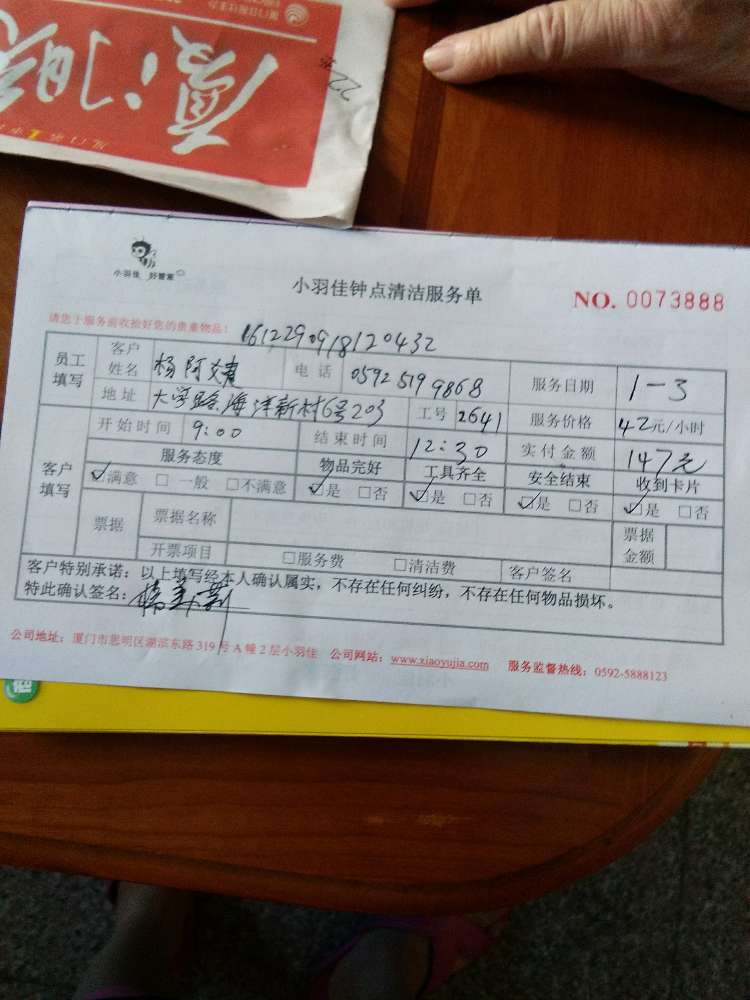 厦门晚
小羽佳 好管家
小羽佳钟点清洁服务单
NO. 0073888
请您于服务前收拾好您的贵重物品！
161229091812 0432
员工填写 客户姓名 杨阿 电话 0592 5199868 服务日期 1-3
地址 海洋新村6号203 工号 2641 服务价格 42元/小时
客户填写 开始时间 9:00 结束时间 12:30 实付金额 147元
服务态度 物品完好 工具齐全 安全结束 收到卡片
☑满意 □一般 □不满意 ☑是 □否 ☑是 □否 ☑是 □否 ☑是 □否
票据 票据名称 票据金额
开票项目 □服务费 □清洁费 客户签名
客户特别承诺：以上填写经本人确认属实，不存在任何纠纷，不存在任何物品损坏。
特此确认签名：
公司地址：厦门市思明区湖滨东路 319 号 A 幢 2 层小羽佳 公司网站：www.xiaoyujia.com 服务监督热线：0592-5888123